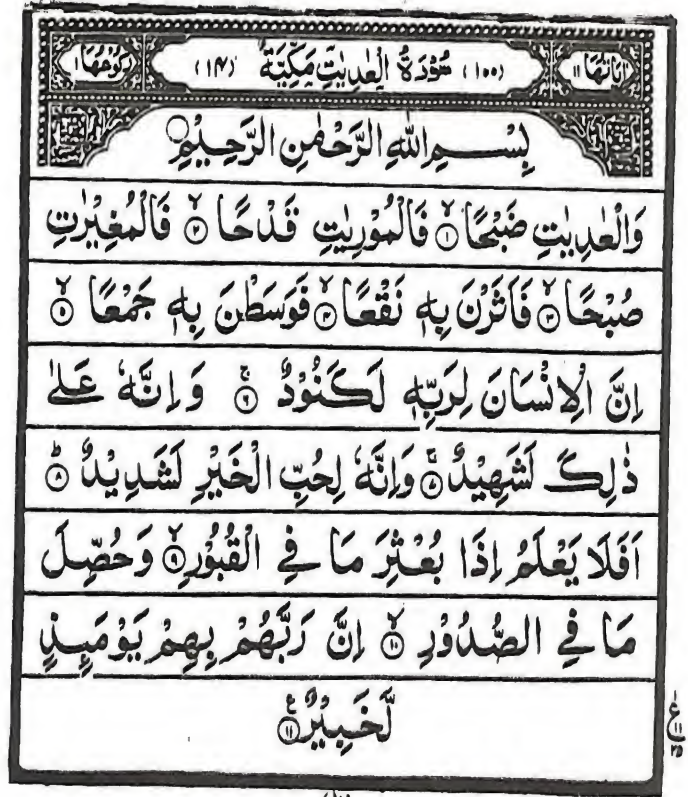 اٰيَاتُهَا ١١ (١٠٠) سُوْرَةُ الْعٰدِيٰتِ مَكِّيَّةٌ (١٤) رُكُوْعُهَا ١
بِسْمِ اللّٰهِ الرَّحْمٰنِ الرَّحِيْمِ
وَالْعٰدِيٰتِ ضَبْحًا ۙ﴿١﴾ فَالْمُوْرِيٰتِ قَدْحًا ۙ﴿٢﴾ فَالْمُغِيْرٰتِ
صُبْحًا ۙ﴿٣﴾ فَاَثَرْنَ بِهٖ نَقْعًا ۙ﴿٤﴾ فَوَسَطْنَ بِهٖ جَمْعًا ۙ﴿٥﴾
اِنَّ الْاِنْسَانَ لِرَبِّهٖ لَكَنُوْدٌ ۚ﴿٦﴾ وَاِنَّهٗ عَلٰى
ذٰلِكَ لَشَهِيْدٌ ۚ﴿٧﴾ وَاِنَّهٗ لِحُبِّ الْخَيْرِ لَشَدِيْدٌ ؕ﴿٨﴾
اَفَلَا يَعْلَمُ اِذَا بُعْثِرَ مَا فِي الْقُبُوْرِ ۙ﴿٩﴾ وَحُصِّلَ
مَا فِي الصُّدُوْرِ ۙ﴿١٠﴾ اِنَّ رَبَّهُمْ بِهِمْ يَوْمَىِٕذٍ
لَّخَبِيْرٌ ﴿١١﴾ ع
ع ١١ ٢٥